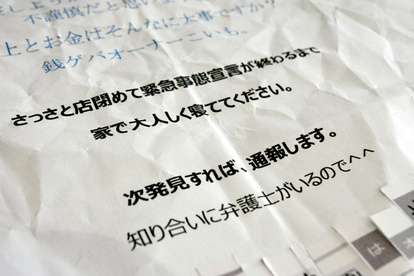 上とお金はそんなに大事ですか?
銭ゲバオーナーこいも。
さっさと店閉めて緊急事態宣言が終わるまで
家で大人しく寝ててください。
次発見すれば、通報します。
知り合いに弁護士がいるので^^
は